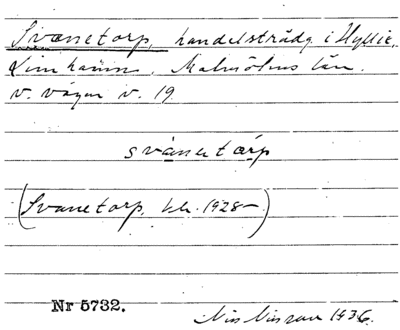 Svanetorp, handelsträdg. i Hyllie,
Limhamn, Malmöhus län.
v. vägen v. 19.
svànetàrp
(Svanetorp, bk. 1928—)
Nr 5732.
Nils Nilsson 1936.